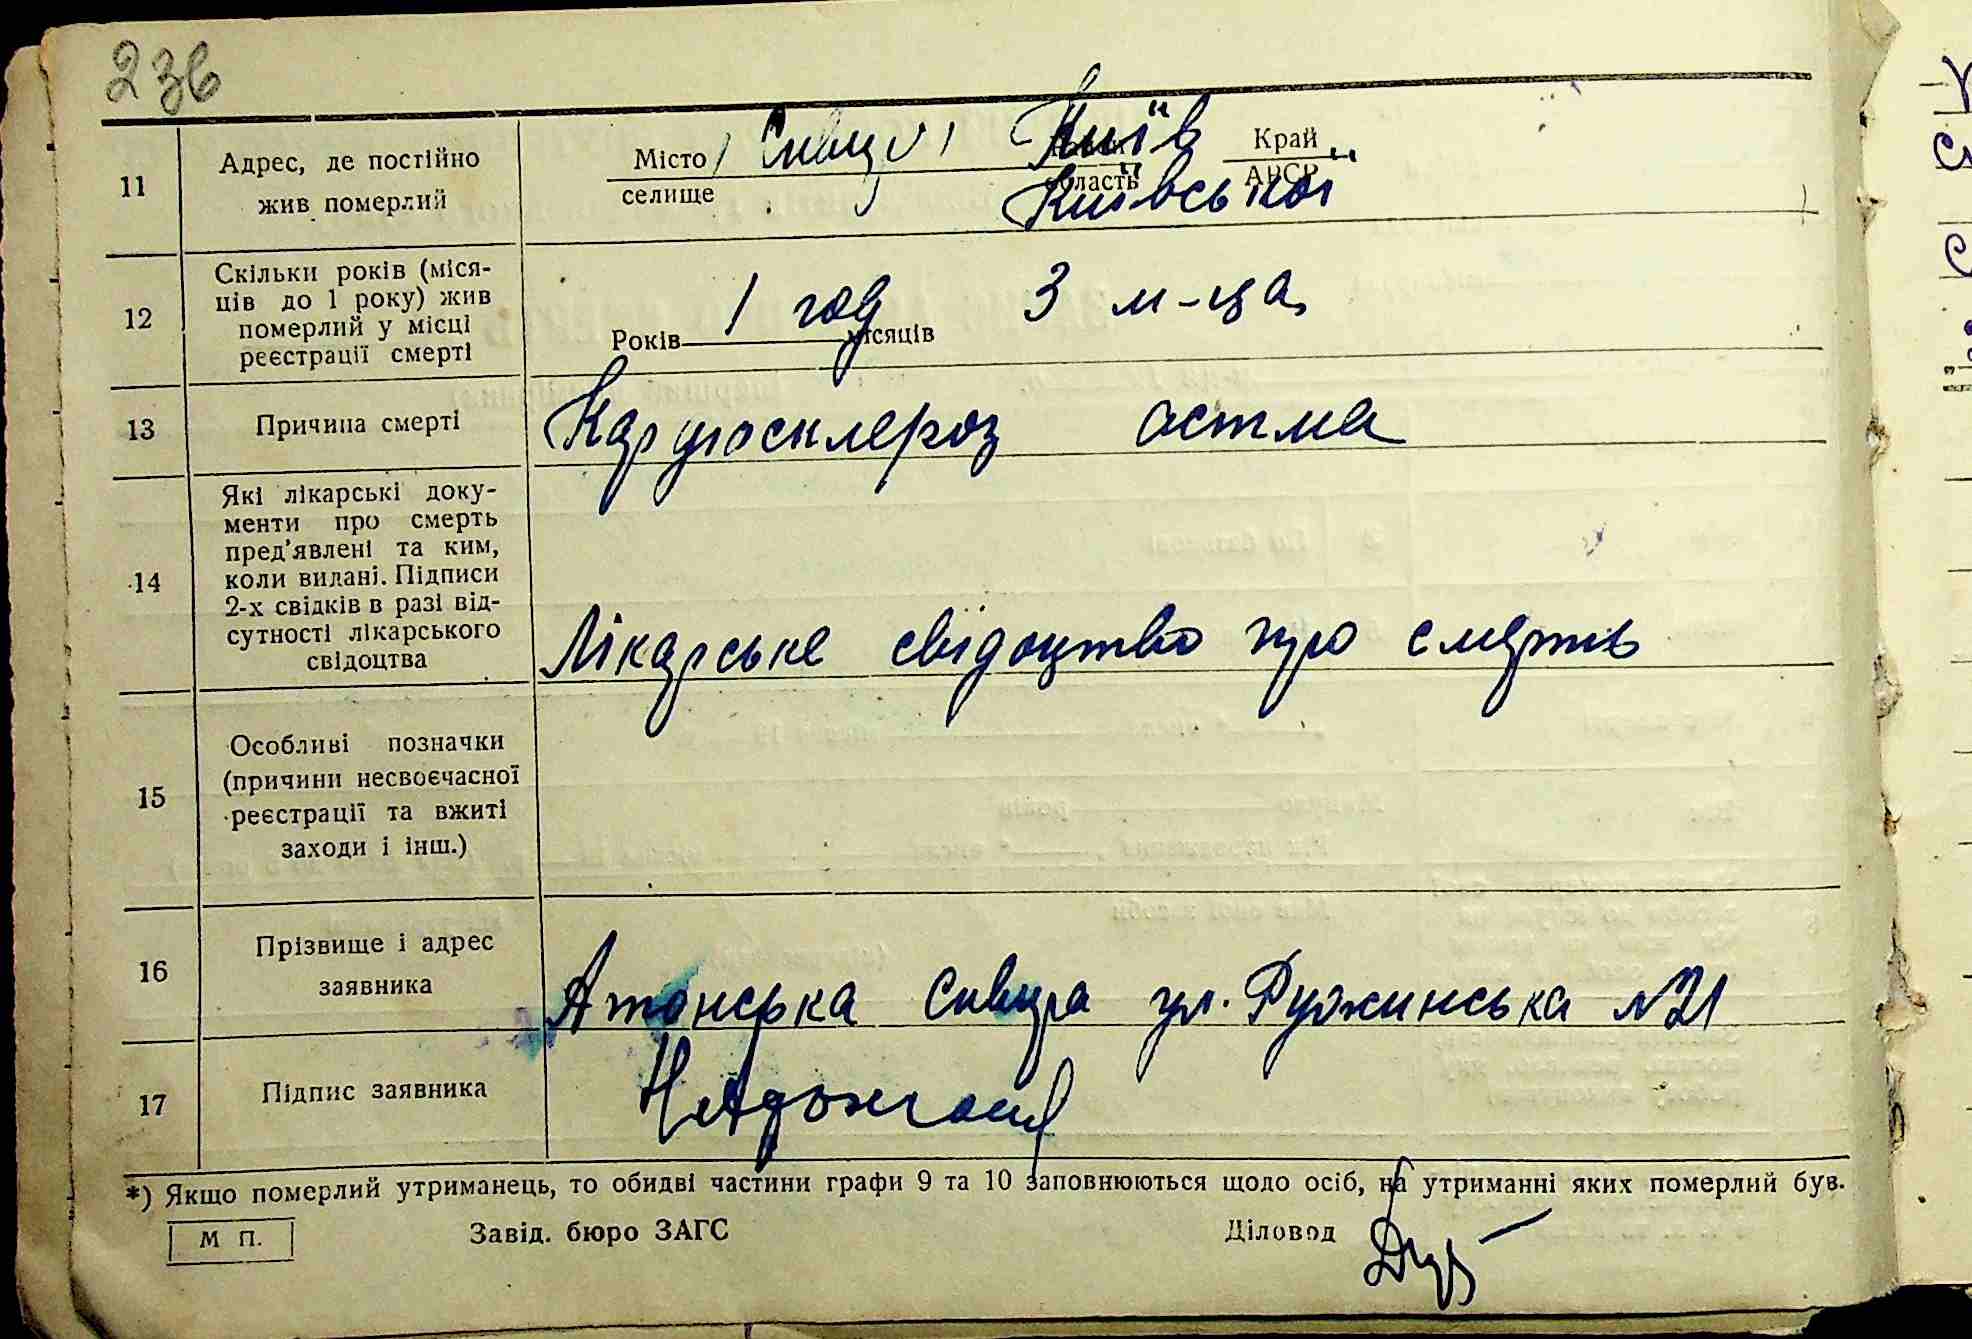 236
11
Адрес, де постійно
жив померлий
Місто Київ Край
селище область АРСР
Київської
12
Скільки років (міся-
ців до 1 року) жив
померлий у місці
реєстрації смерті
Років 1 год місяців 3 м-ца
13
Причина смерті
Кардиосклероз астма
14
Які лікарські доку-
менти про смерть
пред'явлені та ким,
коли видані. Підписи
2-х свідків в разі від-
сутності лікарського
свідоцтва
Лікарське свідоцтво про смерть
15
Особливі позначки
(причини несвоєчасної
реєстрації та вжиті
заходи і інш.)
16
Прізвище і адрес
заявника
Сквира ул. Ружинська №21
17
Підпис заявника
*) Якщо померлий утриманець, то обидві частини графи 9 та 10 заповнюються щодо осіб, на утриманні яких померлий був.
М П.
Завід. бюро ЗАГС
Діловод